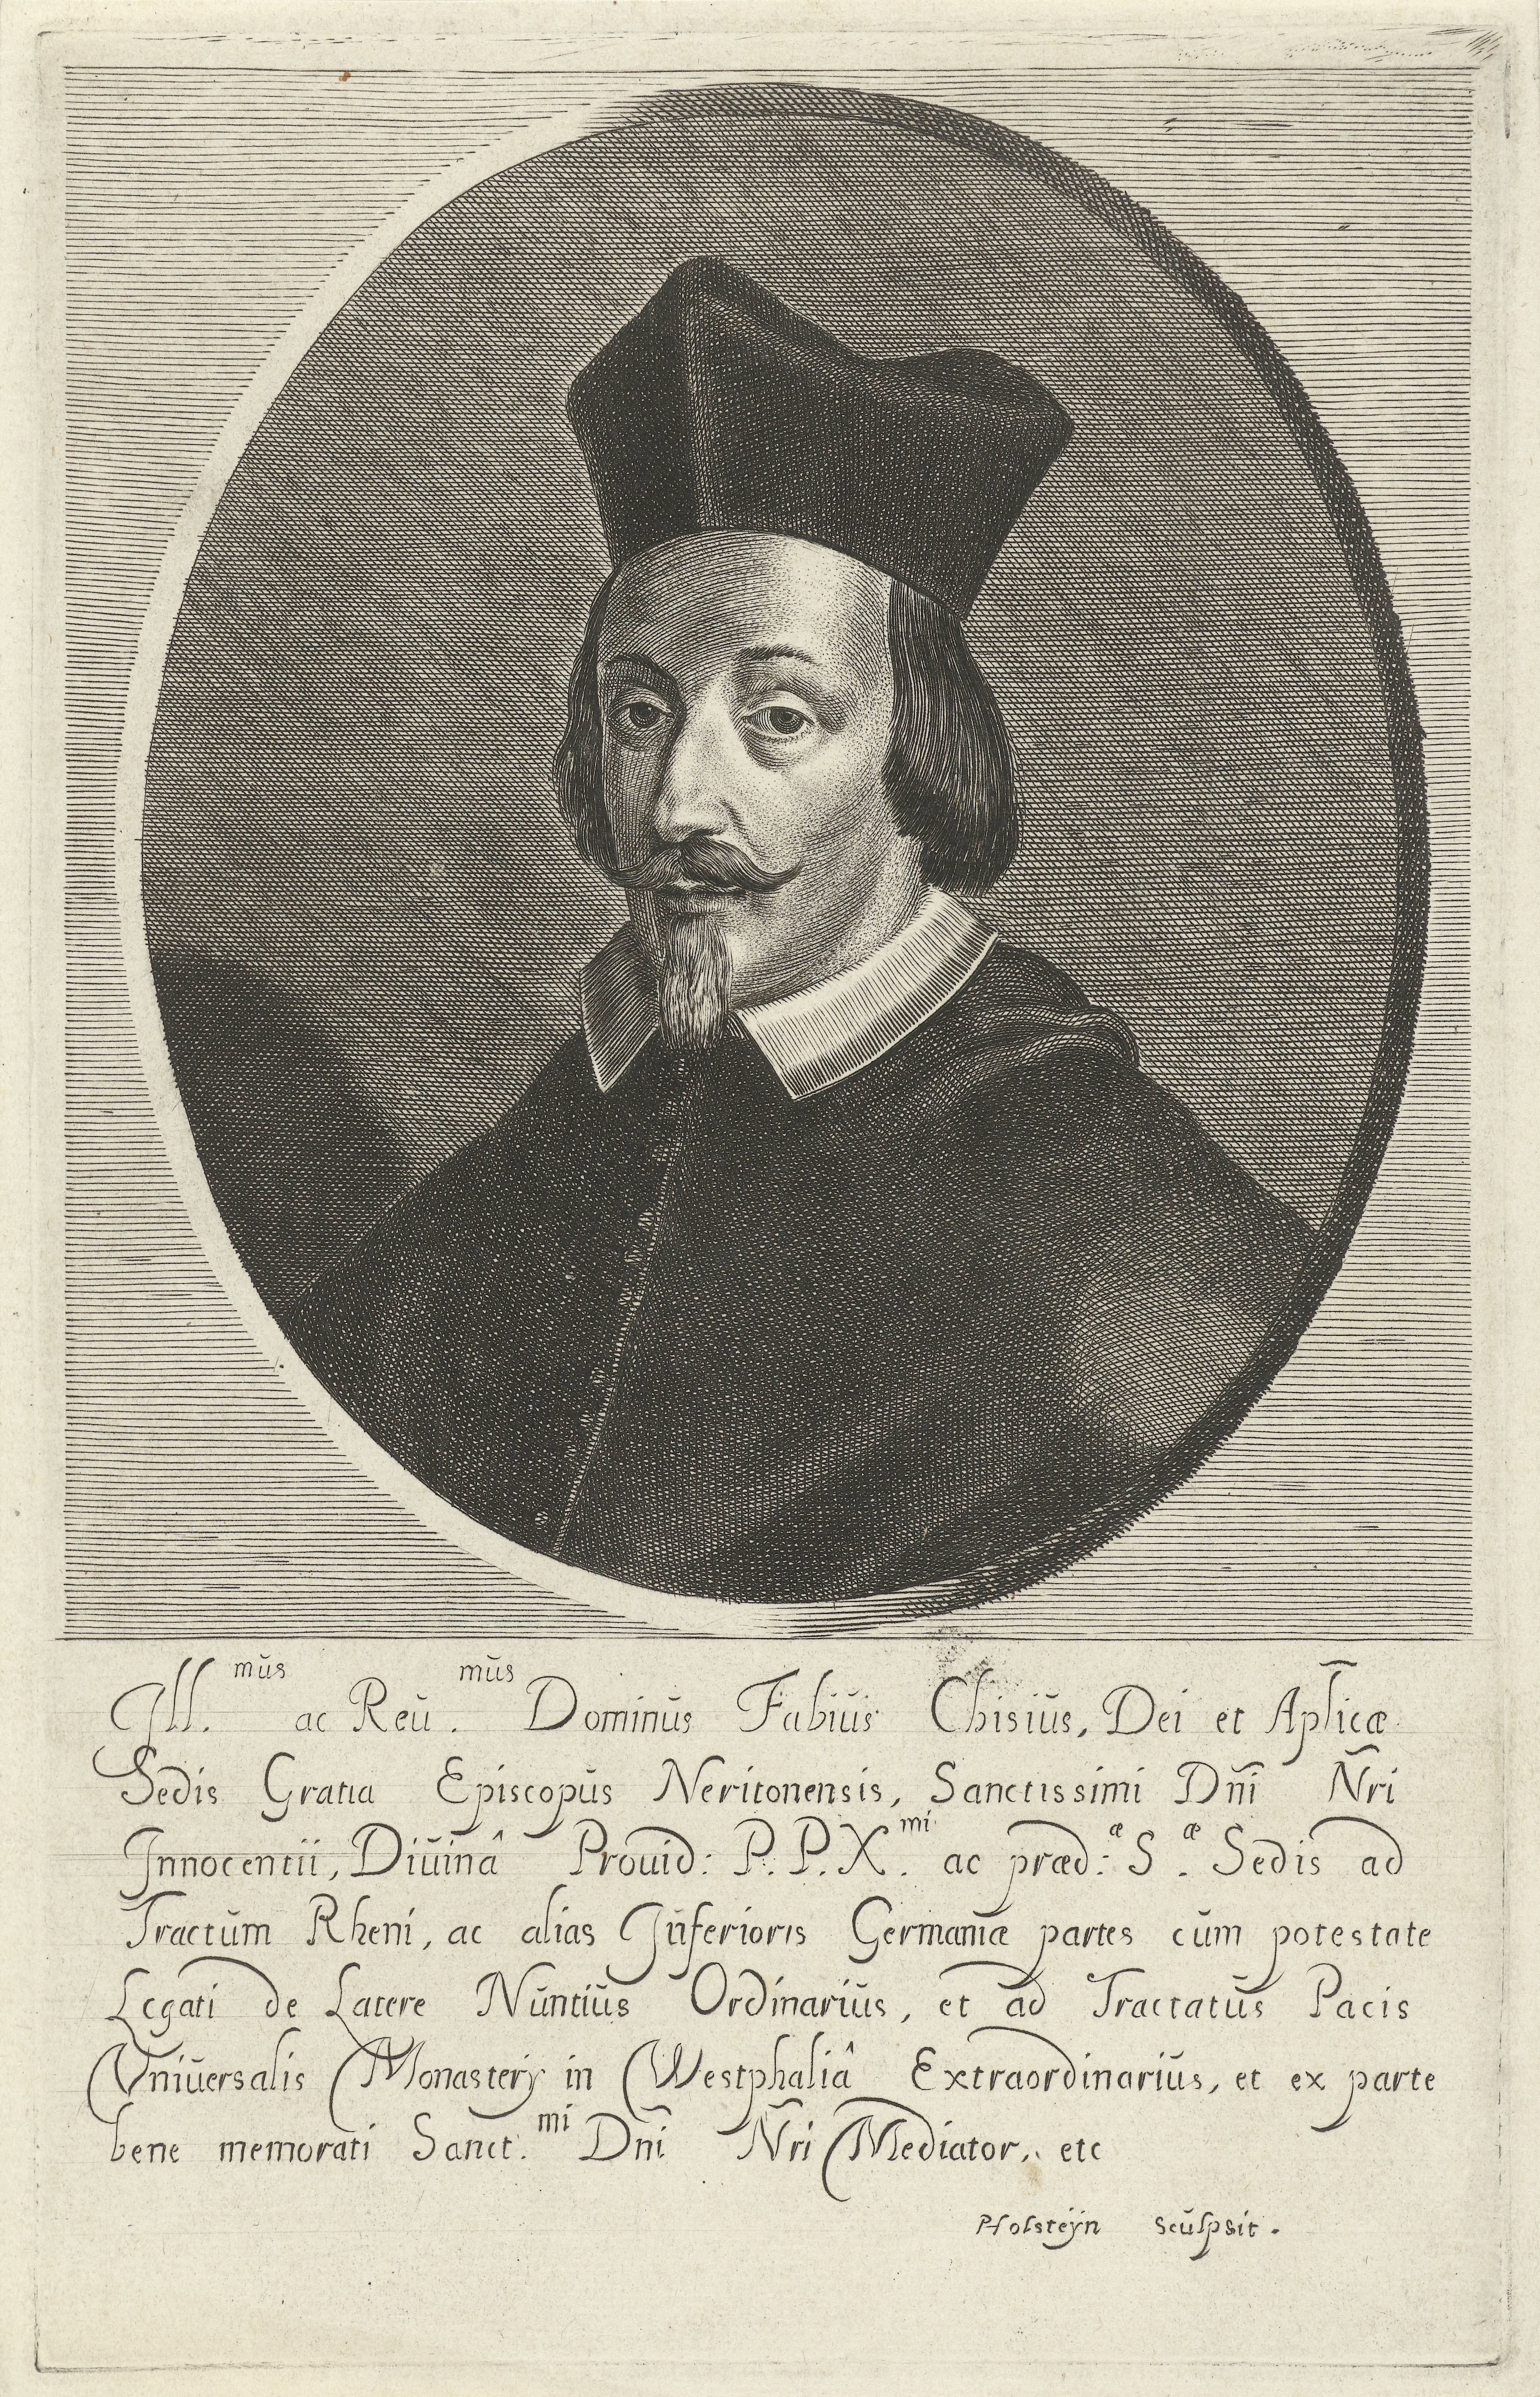 Ill.mũs ac Reũ.mũs Dominũs Fabiũs Chisiũs, Dei et Aplicæ
Sedis Gratia Episcopũs Neritonensis, Sanctissimi Dñi Ñri
Innocentii, Diũinâ Proũid: P. P. X.mi ac præd:æ S.æ Sedis ad
Tractũm Rheni, ac alias Inferioris Germaniæ partes cũm potestate
Legati de Latere Nũntiũs Ordinariũs, et ad Tractatũs Pacis
Vniũersalis Monasterij in Westphaliâ Extraordinariũs, et ex parte
bene memorati Sanct.mi Dñi Ñri Mediator, etc
PHolsteÿn scũlpsit.